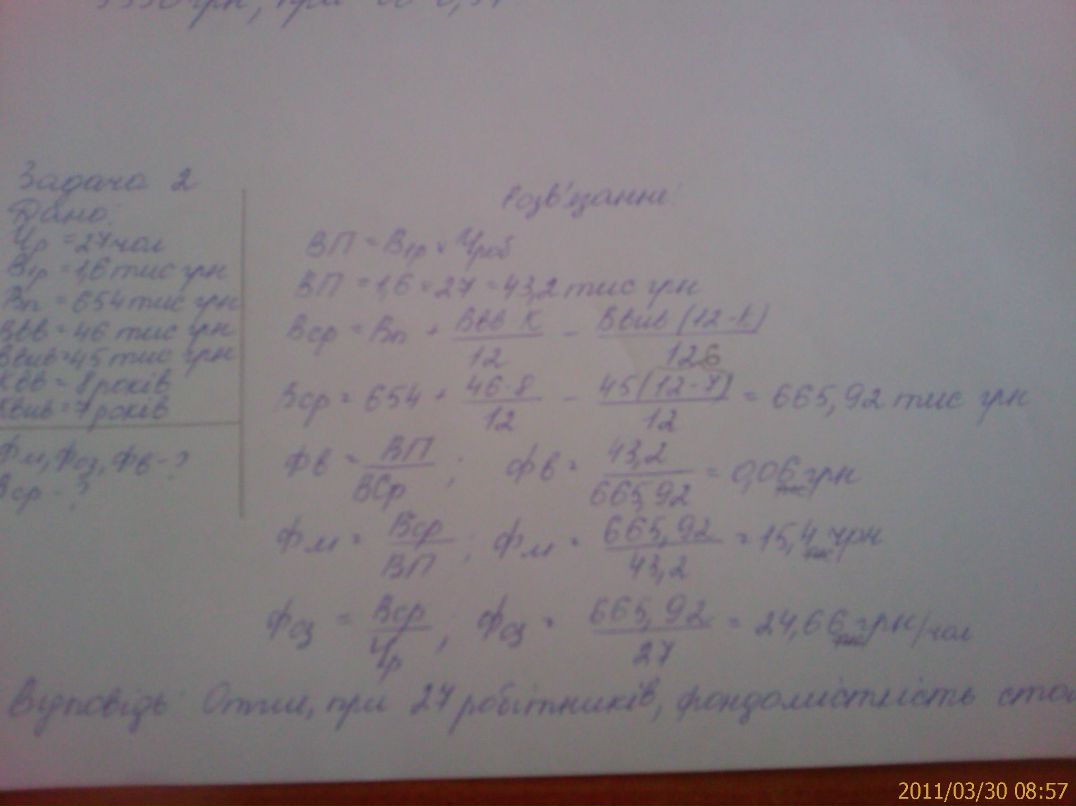 грн, при
Задача 2
Дано:
Чр = 27 чол
В1р = 1,6 тис грн
Вп = 654 тис грн
Ввв = 46 тис грн
Ввив = 45 тис грн
Квв = 8 років
Квив = 7 років
Фм, Фоз, Фв - ?
Вср - ?
Розв'язання:
ВП = В1р × Чроб
ВП = 1,6 × 27 = 43,2 тис грн
Вср = Вп + Ввв·К/12 − Ввив(12-К)/12
Вср = 654 + 46·8/12 − 45(12-7)/12 = 665,92 тис грн
Фв = ВП/ВСр ; Фв = 43,2/665,92 = 0,06 грн
Фм = Вср/ВП ; Фм = 665,92/43,2 = 15,4 грн
Фоз = Вср/Чр ; Фоз = 665,92/27 = 24,66 грн/чол
Відповідь: Отже, при 27 робітників, фондомісткість
2011/03/30 08:57